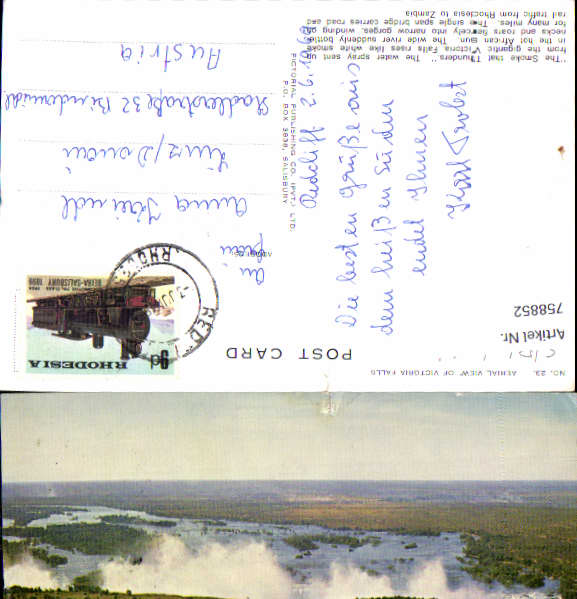 NO. 23. AERIAL VIEW OF VICTORIA FALLS
POST CARD
Artikel Nr.
758852
Redcliff 2.6.1969
Die besten Grüße aus
dem heißen Süden
sendet Ihnen
"The Smoke that Thunders." The water spray sent up
from the gigantic Victoria Falls rises like white smoke
in the hot African sun. The wide river suddenly bottle-
necks and roars fiercely into narrow gorges, winding on
for many miles. The single span bridge carries road and
rail traffic from Rhodesia to Zambia
PICTORIAL PUBLISHING CO. (PVT.) LTD.
P.O. BOX 3938, SALISBURY
RHODESIA
9d
BEIRA-SALISBURY 1899
RHO
3 JU
RED
An
Frau
Anna
Linz/Donau
Stadlerstraße 32 Bindermichl
Austria